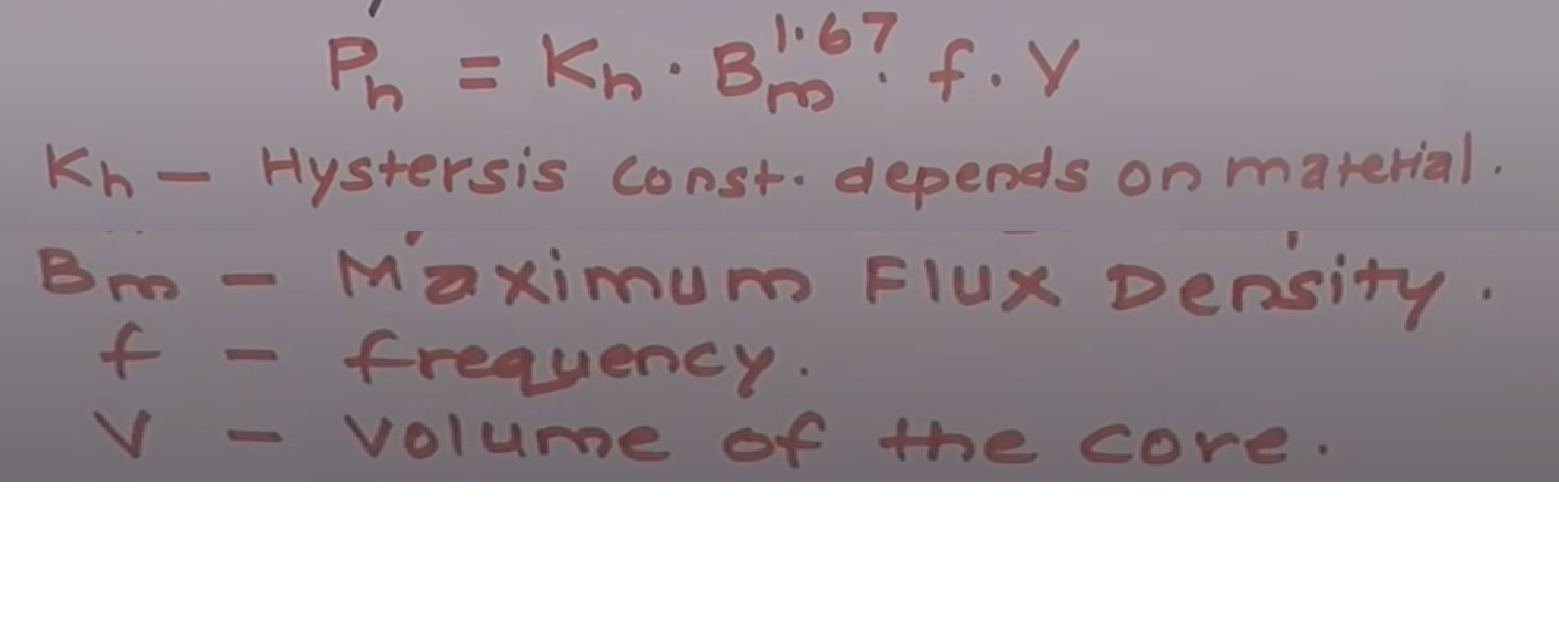 Pₕ = Kₕ · Bₘ¹·⁶⁷ · f · V
Kₕ — Hystersis const. depends on material.
Bₘ — Maximum Flux Density.
f — frequency.
V — Volume of the core.